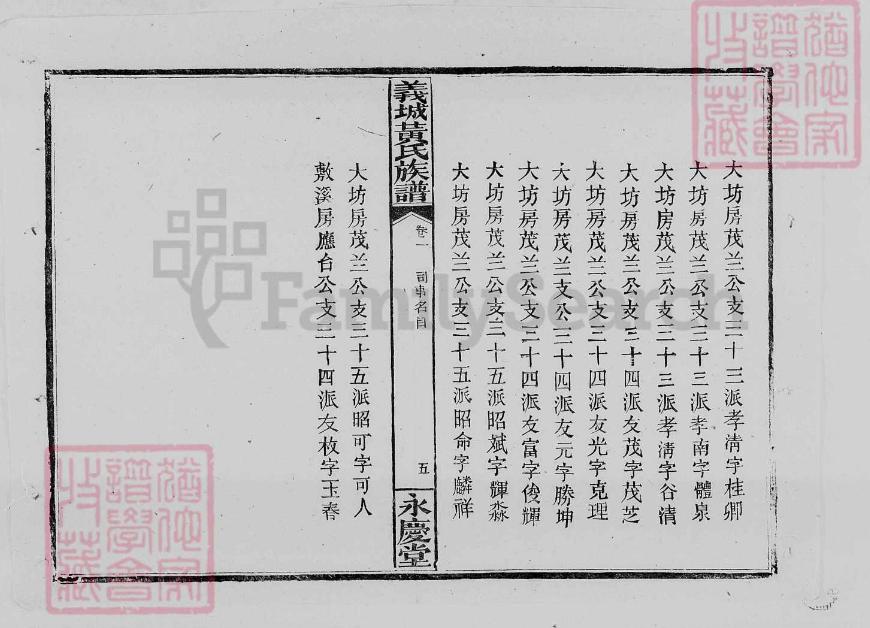 大坊房茂兰公支三十三派孝淸字桂卿
大坊房茂兰公支三十三派孝南字體泉
大坊房茂兰公支三十三派孝淸字谷清
大坊房茂兰公支三十四派友茂字茂芝
大坊房茂兰公支三十四派友光字克理
大坊房茂兰支公三十四派友元字勝坤
大坊房茂兰公支三十四派友富字俊輝
大坊房茂兰公支三十五派昭斌字輝淼
大坊房茂兰公支三十五派昭命字麟祥
義城黃氏族譜
卷一
司事名目
五
永慶堂
大坊房茂兰公支三十五派昭可字可人
敷溪房應台公支三十四派友枚字玉春
FamilySearch
譜學會